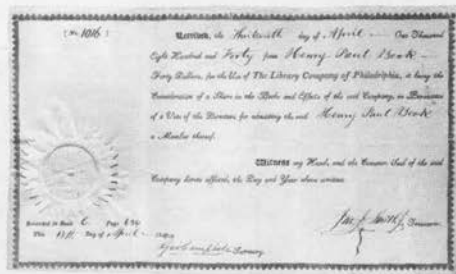 (No. 1016) Received, the Thirteenth day of April One Thousand
Eight Hundred and Forty from Henry Paul Beck
Forty Dollars, for the Use of The Library Company of Philadelphia, it being the
Consideration of a Share in the Books and Effects of the said Company, in Pursuance
of a Vote of the Directors, for admitting the said Henry Paul Beck
a Member thereof.
Witness my Hand, and the Common Seal of the said
Company hereto affixed, the Day and Year above written.
Recorded in Book C. Page
This 13th Day of April
Secretary
Jas. J. Smith Treasurer